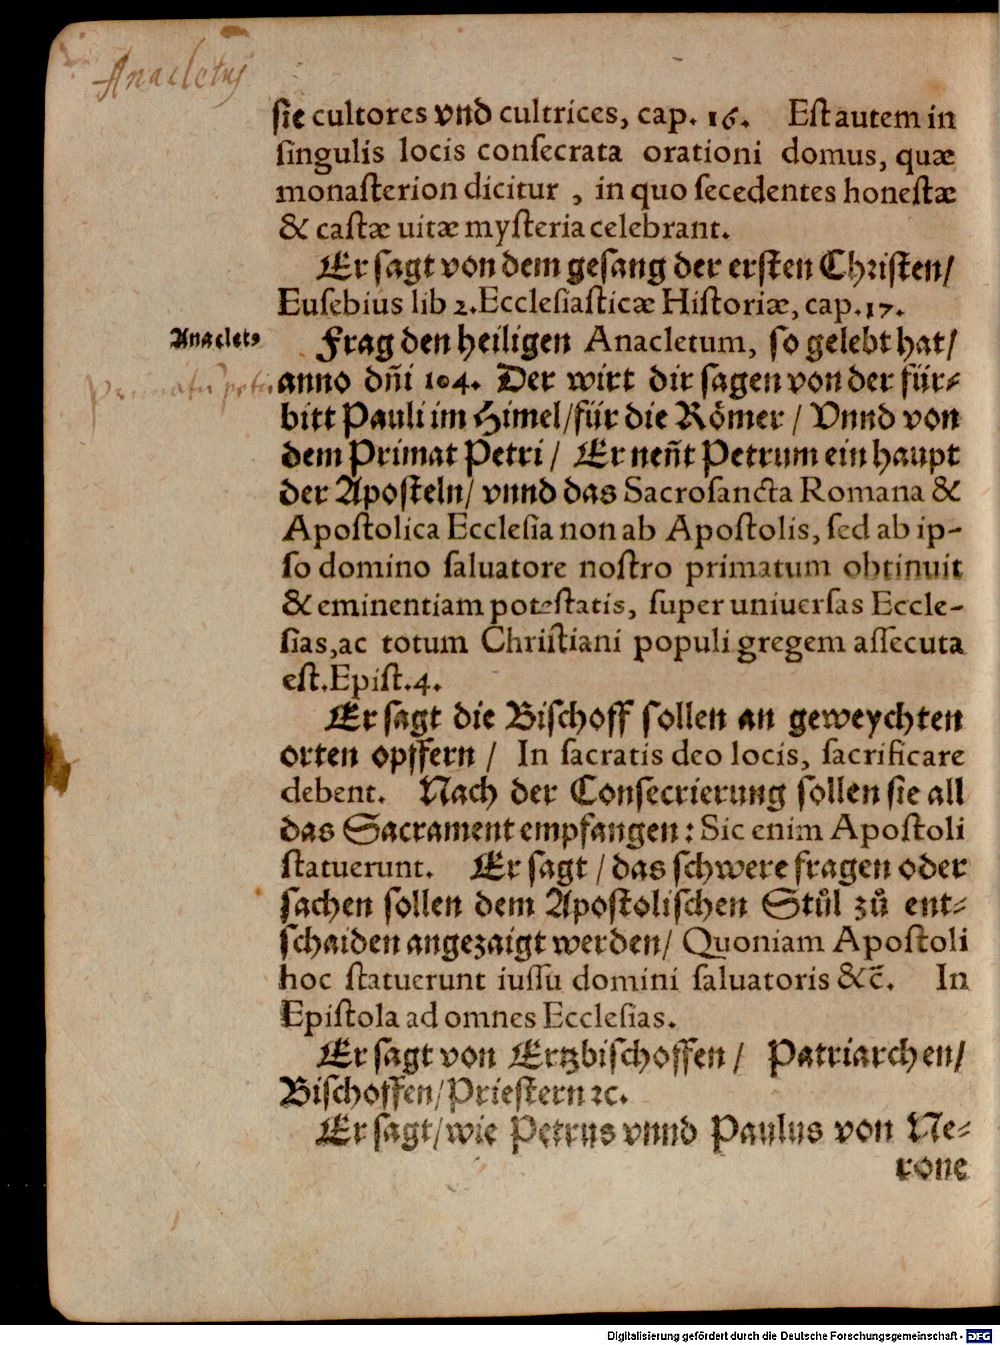 Anacletus
sie cultores vnd cultrices, cap. 16. Est autem in
singulis locis consecrata orationi domus, quæ
monasterion dicitur, in quo secedentes honestæ
& castæ uitæ mysteria celebrant.
Er sagt von dem gesang der ersten Christen/
Eusebius lib 2. Ecclesiasticæ Historiæ, cap. 17.
Anaclet9
Frag den heiligen Anacletum, so gelebt hat/
Primatū petri
anno dñi 104. Der wirt dir sagen von der für-
bitt Pauli im Himel/für die Römer / Vnnd von
dem Primat Petri / Er neñt Petrum ein haupt
der Aposteln/ vnnd das Sacrosancta Romana &
Apostolica Ecclesia non ab Apostolis, sed ab ip-
so domino saluatore nostro primatum obtinuit
& eminentiam potestatis, super uniuersas Eccle-
sias, ac totum Christiani populi gregem assecuta
est. Epist. 4.
Er sagt die Bischoff sollen an geweychten
orten opffern / In sacratis deo locis, sacrificare
debent. Nach der Consecrierung sollen sie all
das Sacrament empfangen: Sic enim Apostoli
statuerunt. Er sagt / das schwere fragen oder
sachen sollen dem Apostolischen Stůl zů ent-
schaiden angezaigt werden/ Quoniam Apostoli
hoc statuerunt iussu domini saluatoris &c̄. In
Epistola ad omnes Ecclesias.
Er sagt von Ertzbischoffen / Patriarchen/
Bischoffen/Priestern ꝛc.
Er sagt/wie Petrus vnnd Paulus von Ne-
rone
Digitalisierung gefördert durch die Deutsche Forschungsgemeinschaft - DFG